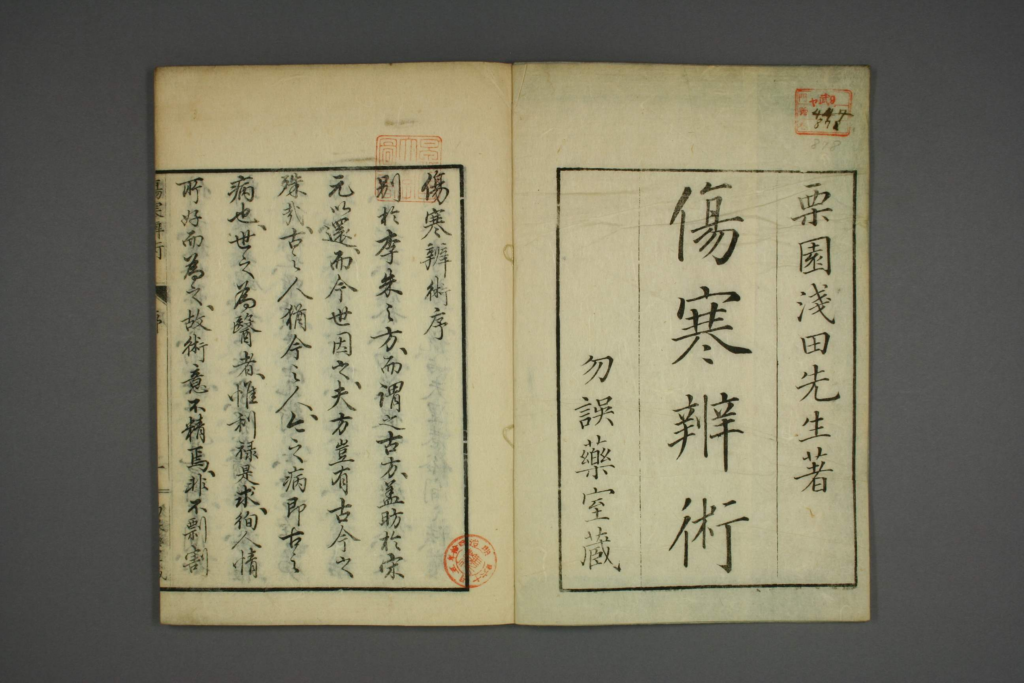 栗園淺田先生著
傷寒辨術
勿誤藥室藏
傷寒辨術序
別於李朱之方、而謂之古方、蓋昉於宋
元以還、而今世因之、夫方豈有古今之
殊哉、古之人猶今之人、今之病即古之
病也、世之為醫者、惟利祿是求、徇人情
所好而為之、故術意不精焉、非不剽割
傷寒辨術
序